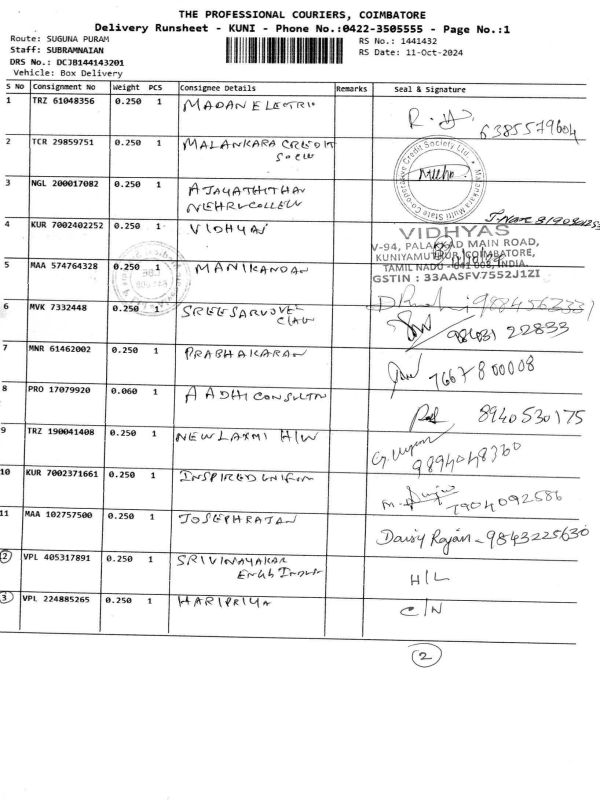 THE PROFESSIONAL COURIERS, COIMBATORE
Delivery Runsheet - KUNI - Phone No.:0422-3505555 - Page No.:1
Route: SUGUNA PURAM
RS No.: 1441432
Staff: SUBRAMNAIAN
RS Date: 11-Oct-2024
DRS No.: DCJB144143201
Vehicle: Box Delivery
S No Consignment No Weight PCS Consignee Details Remarks Seal & Signature
1 TRZ 61048356 0.250 1 MADAN ELECTRI
6385579604
2 TCR 29859751 0.250 1 MALANKARA CREDIT
3 NGL 200017082 0.250 1
NEHRU COLLEGE
4 KUR 7002402252 0.250 1 VIDHYAS
VIDHYAS
V-94, PALAKKAD MAIN ROAD,
KUNIYAMUTHUR, COIMBATORE,
TAMIL NADU - 641 008, INDIA.
GSTIN : 33AASFV7552J1ZI
5 MAA 574764328 0.250 1 MANIKANDAN
9884563331
6 MVK 7332448 0.250 1
22833
7 MNR 61462002 0.250 1 PRABHAKARAN
7667800008
8 PRO 17079920 0.060 1 AADHI CONSULTN
8940530175
9 TRZ 190041408 0.250 1 NEW LAXMI H/W
9894048360
10 KUR 7002371661 0.250 1 INSPIRED UNIFIM
7904092586
11 MAA 102757500 0.250 1 JOSEPH RAJAN
Daisy Rajan - 9843225630
2 VPL 405317891 0.250 1 SRI VINAYAKAR
H/L
3 VPL 224885265 0.250 1 HARIPRIYA
C/N
2